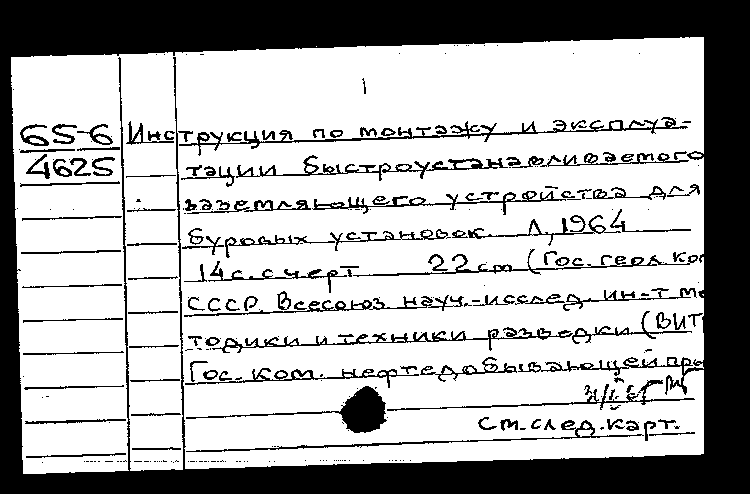 1
65-6 Инструкция по монтажу и эксплуа-
4625 тации быстроустанавливаемого
заземляющего устройства для
буровых установок. Л, 1964
14 с. с черт 22 cm (Гос. геол. ком
СССР. Всесоюз. науч.-исслед. ин-т ме
тодики и техники разведки (ВИТР
Гос. ком. нефтедобывающей пр
См. след. карт.